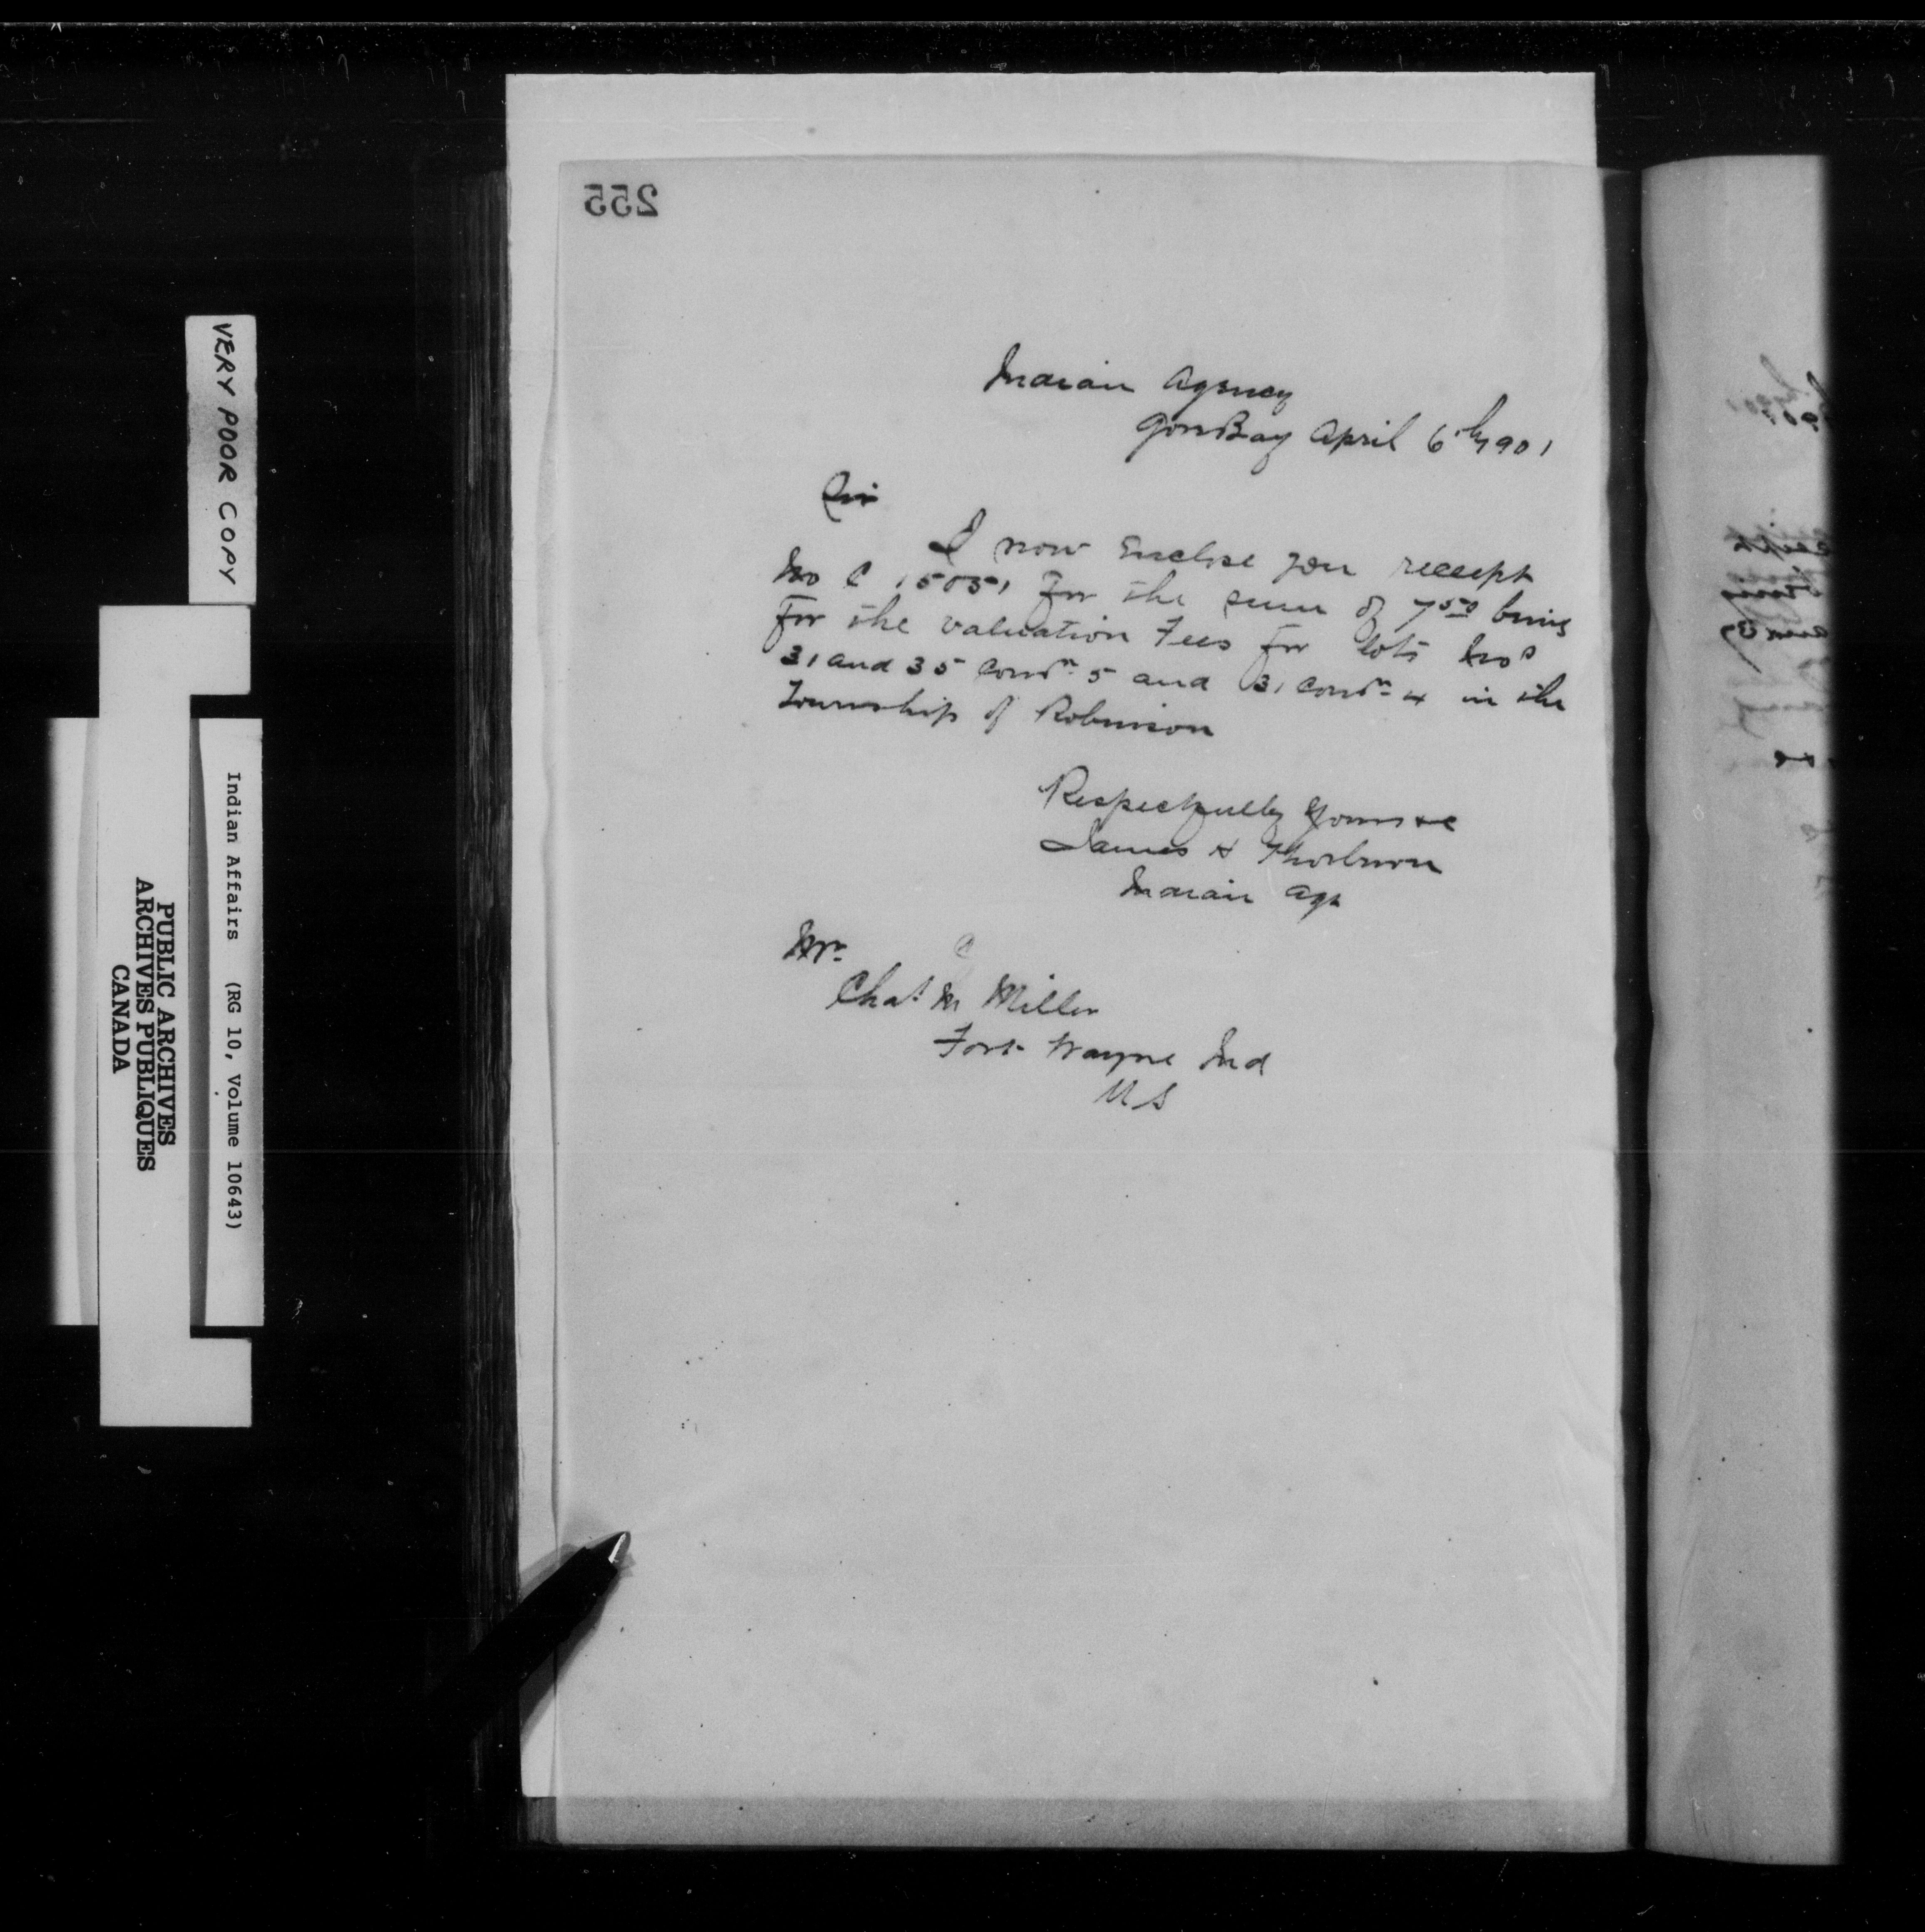 255
Indian Agency
Gore Bay April 6th 1901
Sir
I now Enclose you receept
No C 15051 For the sum of 7 50 being
For the valuation Fees For lots Nos
31 and 35 Conn 5 and 31 Conn 4 in the
Township of Robinson
Respectfully Yours &c
James H Thorburn
Indian Agt
Mr
Chas M Miller
Fort Wayne Ind
U S
VERY POOR COPY
Indian Affairs (RG 10, Volume 10643)
PUBLIC ARCHIVES
ARCHIVES PUBLIQUES
CANADA